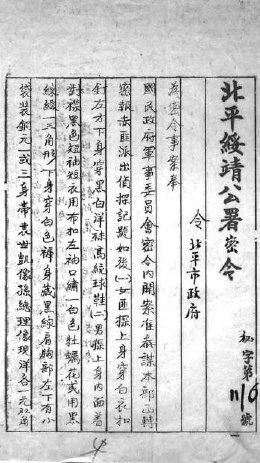 北平綏靖公署密令
令 北平市政府
秘字第 116 號
為密令事案奉
國民政府軍事委員會密令內開案准參謀本部函轉
密報赤匪派出偵探記號如後(一)女匪探上身穿白衣扣
釘左方下身穿黑白洋襪高統球鞋(二)男探上身內面着
對襟黑色短袖短衣用布扣左袖口繡一白色牡蠣花或用黑
線繡一三角形下身穿白色褲身藏黑線肩胸部左下有小
袋裝銅元一或三身帶袁世凱像孫總理像現洋各一元